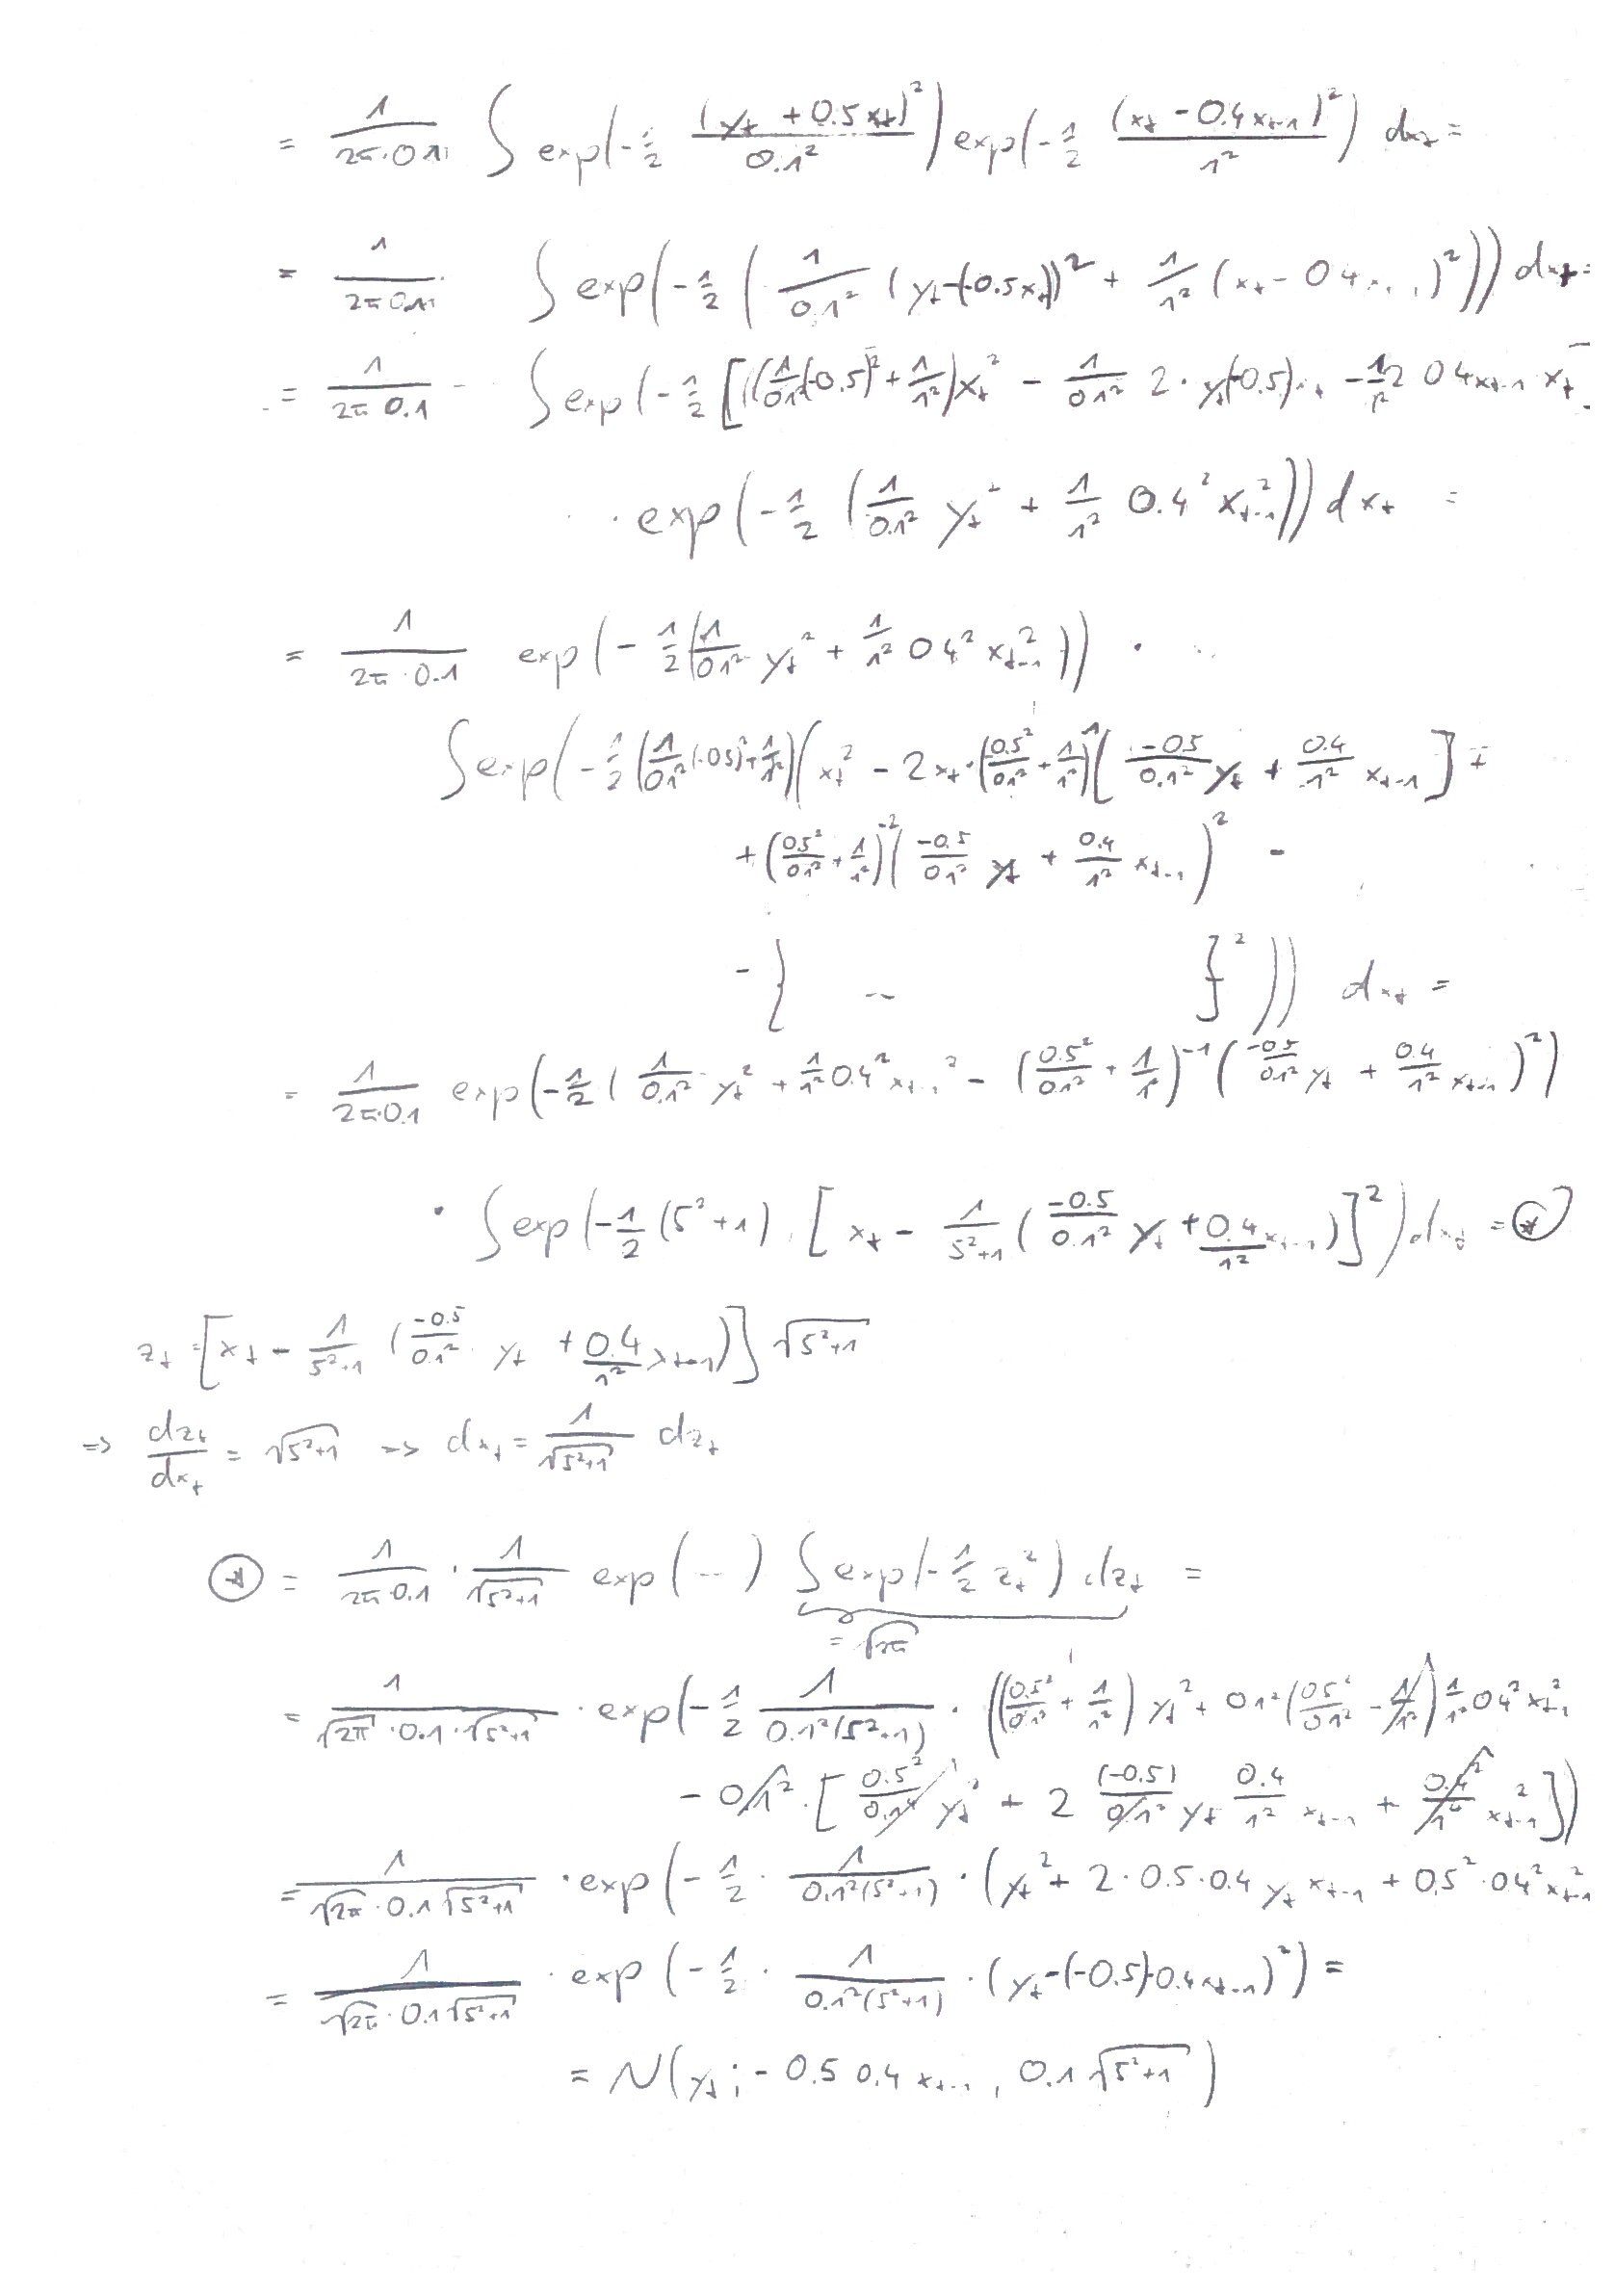 = 1/(2π·0.1) ∫ exp(-1/2 (y_t + 0.5x_t)²/0.1²) exp(-1/2 (x_t - 0.4x_{t-1})²/1²) dx_t =
= 1/(2π 0.1) ∫ exp(-1/2 (1/0.1² (y_t-(-0.5x_t))² + 1/1² (x_t - 0.4x_{t-1})²)) dx_t =
= 1/(2π 0.1) · ∫ exp(-1/2 [((1/0.1²(-0.5)² + 1/1²)x_t² - 1/0.1² 2·y_t(-0.5)x_t - 1/1² 2 0.4x_{t-1} x_t]
· exp(-1/2 (1/0.1² y_t² + 1/1² 0.4² x_{t-1}²)) dx_t =
= 1/(2π·0.1) exp(-1/2(1/0.1² y_t² + 1/1² 0.4² x_{t-1}²)) ·
∫ exp(-1/2 (1/0.1²(-0.5)² + 1/1²)(x_t² - 2x_t·(0.5²/0.1² + 1/1²)^{-1}[-0.5/0.1² y_t + 0.4/1² x_{t-1}] +
+ (0.5²/0.1² + 1/1²)^{-2}(-0.5/0.1² y_t + 0.4/1² x_{t-1})² -
- { ... }²)) dx_t =
= 1/(2π·0.1) exp(-1/2 (1/0.1² y_t² + 1/1² 0.4² x_{t-1}² - (0.5²/0.1² + 1/1²)^{-1}(-0.5/0.1² y_t + 0.4/1² x_{t-1})²)
· ∫ exp(-1/2 (5²+1) · [x_t - 1/(5²+1) (-0.5/0.1² y_t + 0.4/1² x_{t-1})]²) dx_t = ⊛
z_t = [x_t - 1/(5²+1) (-0.5/0.1² y_t + 0.4/1² x_{t-1})] √(5²+1)
=> dz_t/dx_t = √(5²+1) => dx_t = 1/√(5²+1) dz_t
⊛ = 1/(2π 0.1) · 1/√(5²+1) exp(...) ∫ exp(-1/2 z_t²) dz_t =
= √(2π)
= 1/(√(2π)·0.1·√(5²+1)) · exp(-1/2 1/(0.1²(5²+1)) · ((0.5²/0.1² + 1/1²) y_t² + 0.1²(0.5²/0.1² - 1/1²) 1/1² 0.4² x_{t-1}²
- 0.1²·[0.5²/0.1⁴ y_t² + 2 (-0.5)/0.1² y_t 0.4/1² x_{t-1} + 0.4²/1⁴ x_{t-1}²])
= 1/(√(2π)·0.1√(5²+1)) · exp(-1/2 · 1/(0.1²(5²+1)) · (y_t² + 2·0.5·0.4 y_t x_{t-1} + 0.5²·0.4² x_{t-1}²
= 1/(√(2π)·0.1√(5²+1)) · exp(-1/2 · 1/(0.1²(5²+1)) · (y_t-(-0.5)·0.4x_{t-1})²) =
= N(y_t; -0.5 0.4 x_{t-1}, 0.1√(5²+1))